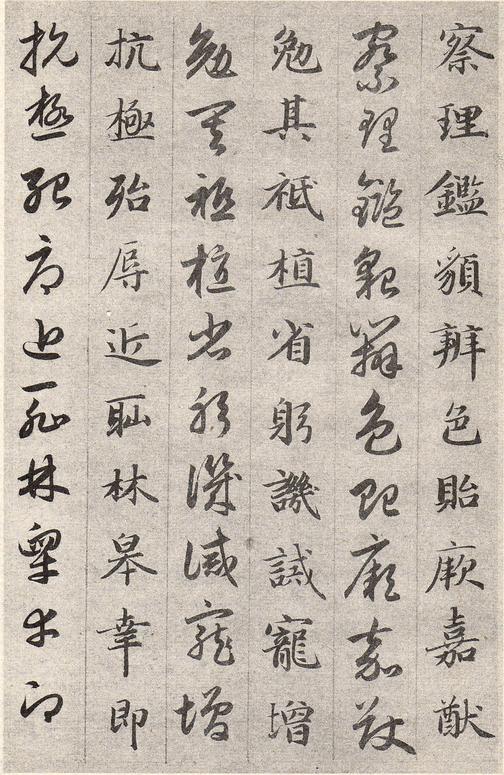 察理鑑貌辨色貽厥嘉猷
察理鑑貌辨色貽厥嘉猷
勉其祗植省躬譏誡寵增
勉其祗植省躬譏誡寵增
抗極殆辱近恥林皋幸即
抗極殆辱近恥林皋幸即